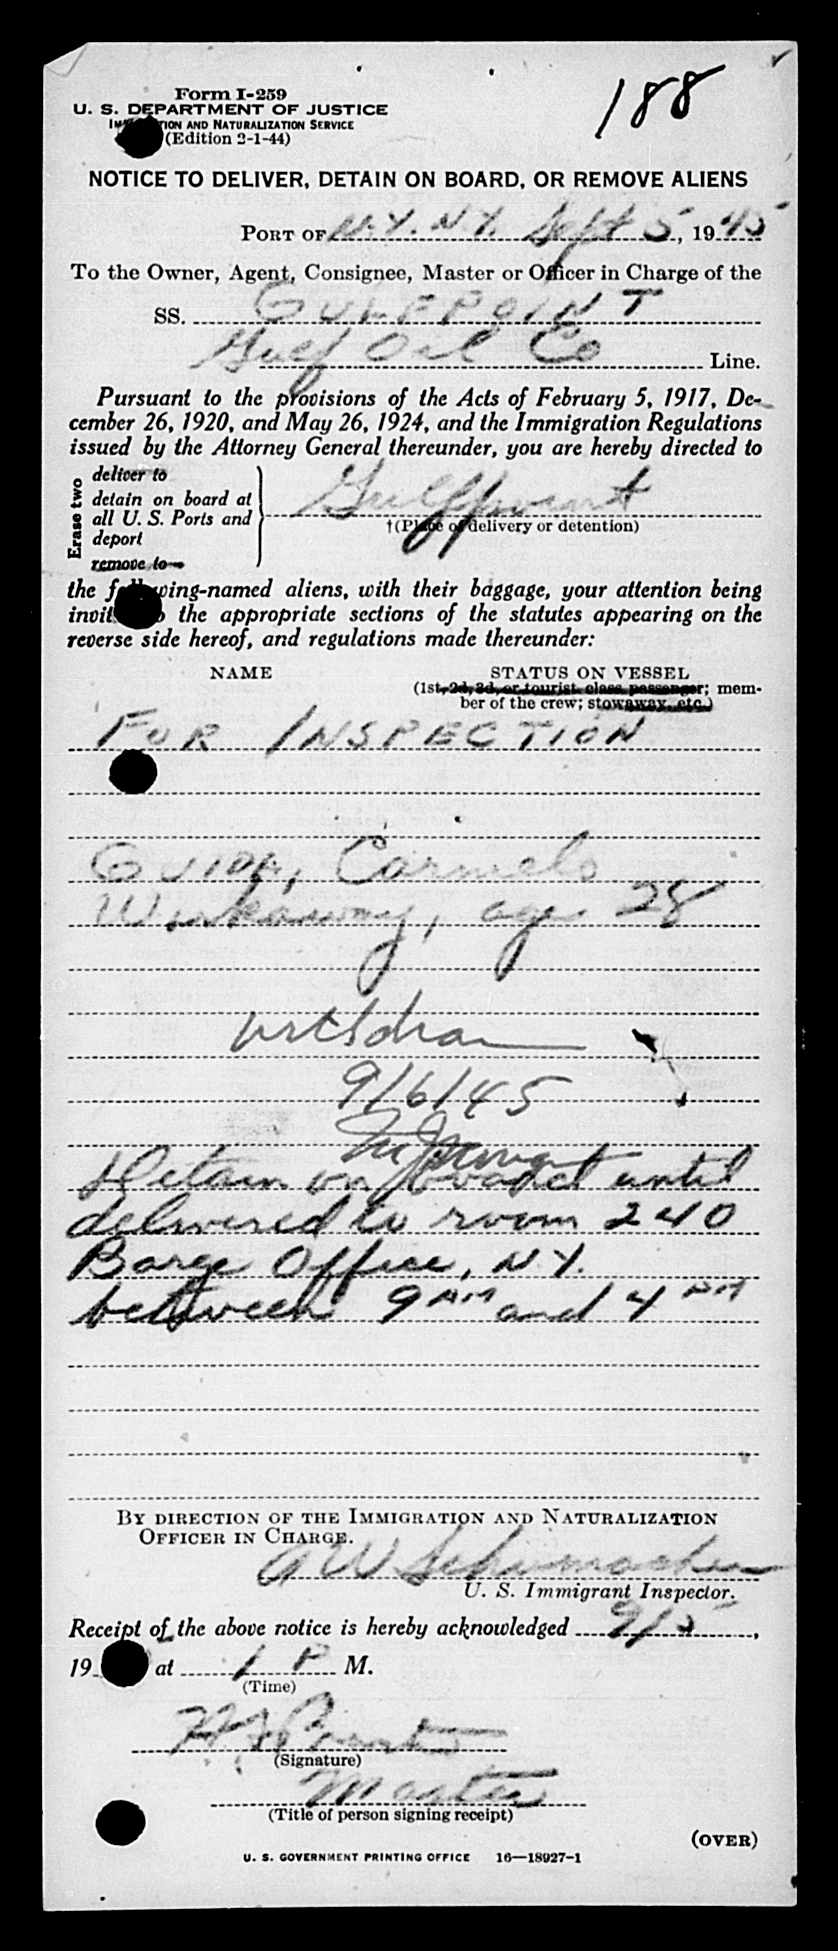 188
Form I-259
U. S. DEPARTMENT OF JUSTICE
AND NATURALIZATION SERVICE
(Edition 2-1-44)
NOTICE TO DELIVER, DETAIN ON BOARD, OR REMOVE ALIENS
PORT OF N.Y. N.Y. Sept 5, 1945
To the Owner, Agent, Consignee, Master or Officer in Charge of the
SS. GULFPOINT
Gulf Oil Co Line.
Pursuant to the provisions of the Acts of February 5, 1917, De-
cember 26, 1920, and May 26, 1924, and the Immigration Regulations
issued by the Attorney General thereunder, you are hereby directed to
Erase two
deliver to
detain on board at
all U. S. Ports and
deport
remove to
Gulfpoint
†(Place of delivery or detention)
the following-named aliens, with their baggage, your attention being
the appropriate sections of the statutes appearing on the
reverse side hereof, and regulations made thereunder:
NAME STATUS ON VESSEL
(1st, 2d, 3d, or tourist class passenger; mem-
ber of the crew; stowaway, etc.)
FOR INSPECTION
GUIDA, Carmelo
Workaway, age 28
9/6/45
Detain on board until
delivered to room 240
Barge Office, N.Y.
between 9 AM and 4 PM
BY DIRECTION OF THE IMMIGRATION AND NATURALIZATION
OFFICER IN CHARGE.
A W Schumacher
U. S. Immigrant Inspector.
Receipt of the above notice is hereby acknowledged 9/5,
19 at 1 P M.
(Time)
(Signature)
Master
(Title of person signing receipt)
(OVER)
U. S. GOVERNMENT PRINTING OFFICE 16—18927-1